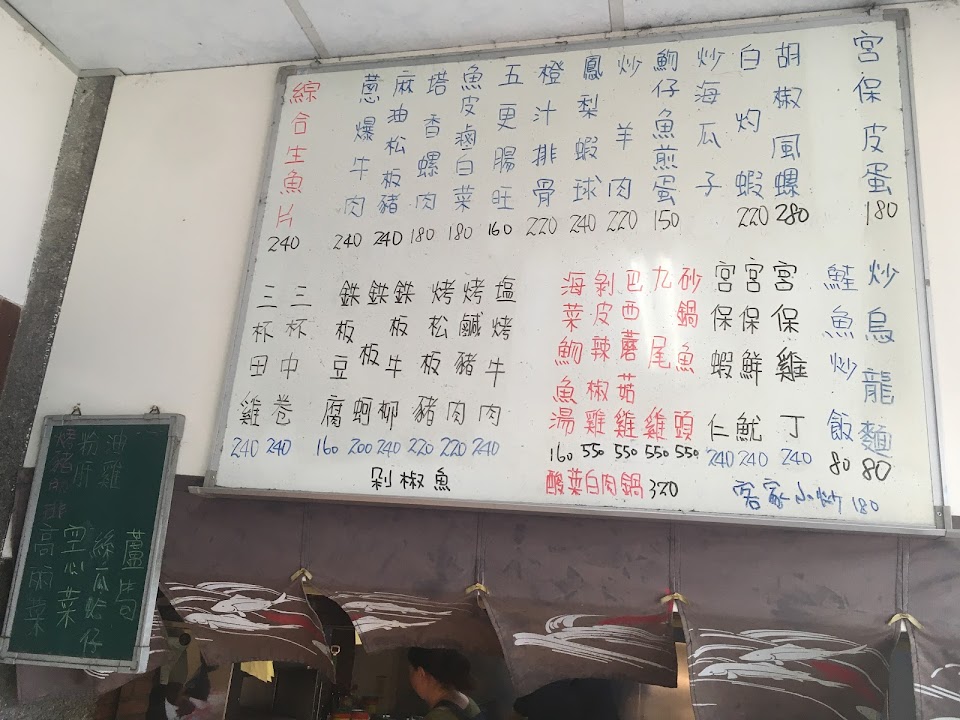 宮保皮蛋 180
胡椒風螺 280
白灼蝦 220
炒海瓜子
魩仔魚煎蛋 150
炒羊肉 220
鳳梨蝦球 240
橙汁排骨 220
五更腸旺 160
魚皮滷白菜 180
塔香螺肉 180
麻油松板豬 240
蔥爆牛肉 240
綜合生魚片 240
炒烏龍麵 80
鮭魚炒飯 80
宮保雞丁 240
宮保鮮魷 240
宮保蝦仁 240
砂鍋魚頭 550
九尾雞 550
巴西蘑菇雞 550
剝皮辣椒雞 550
海菜魩魚湯 160
塩烤牛肉 240
烤鹹豬肉 220
烤松板豬 220
鉄板牛柳 240
鉄板蚵 200
鉄板豆腐 160
三杯中卷 240
三杯田雞 240
剁椒魚
酸菜白肉鍋 320
客家小炒 180
油雞
粉肝
蘆筍
絲瓜蛤仔
空心菜
高麗菜